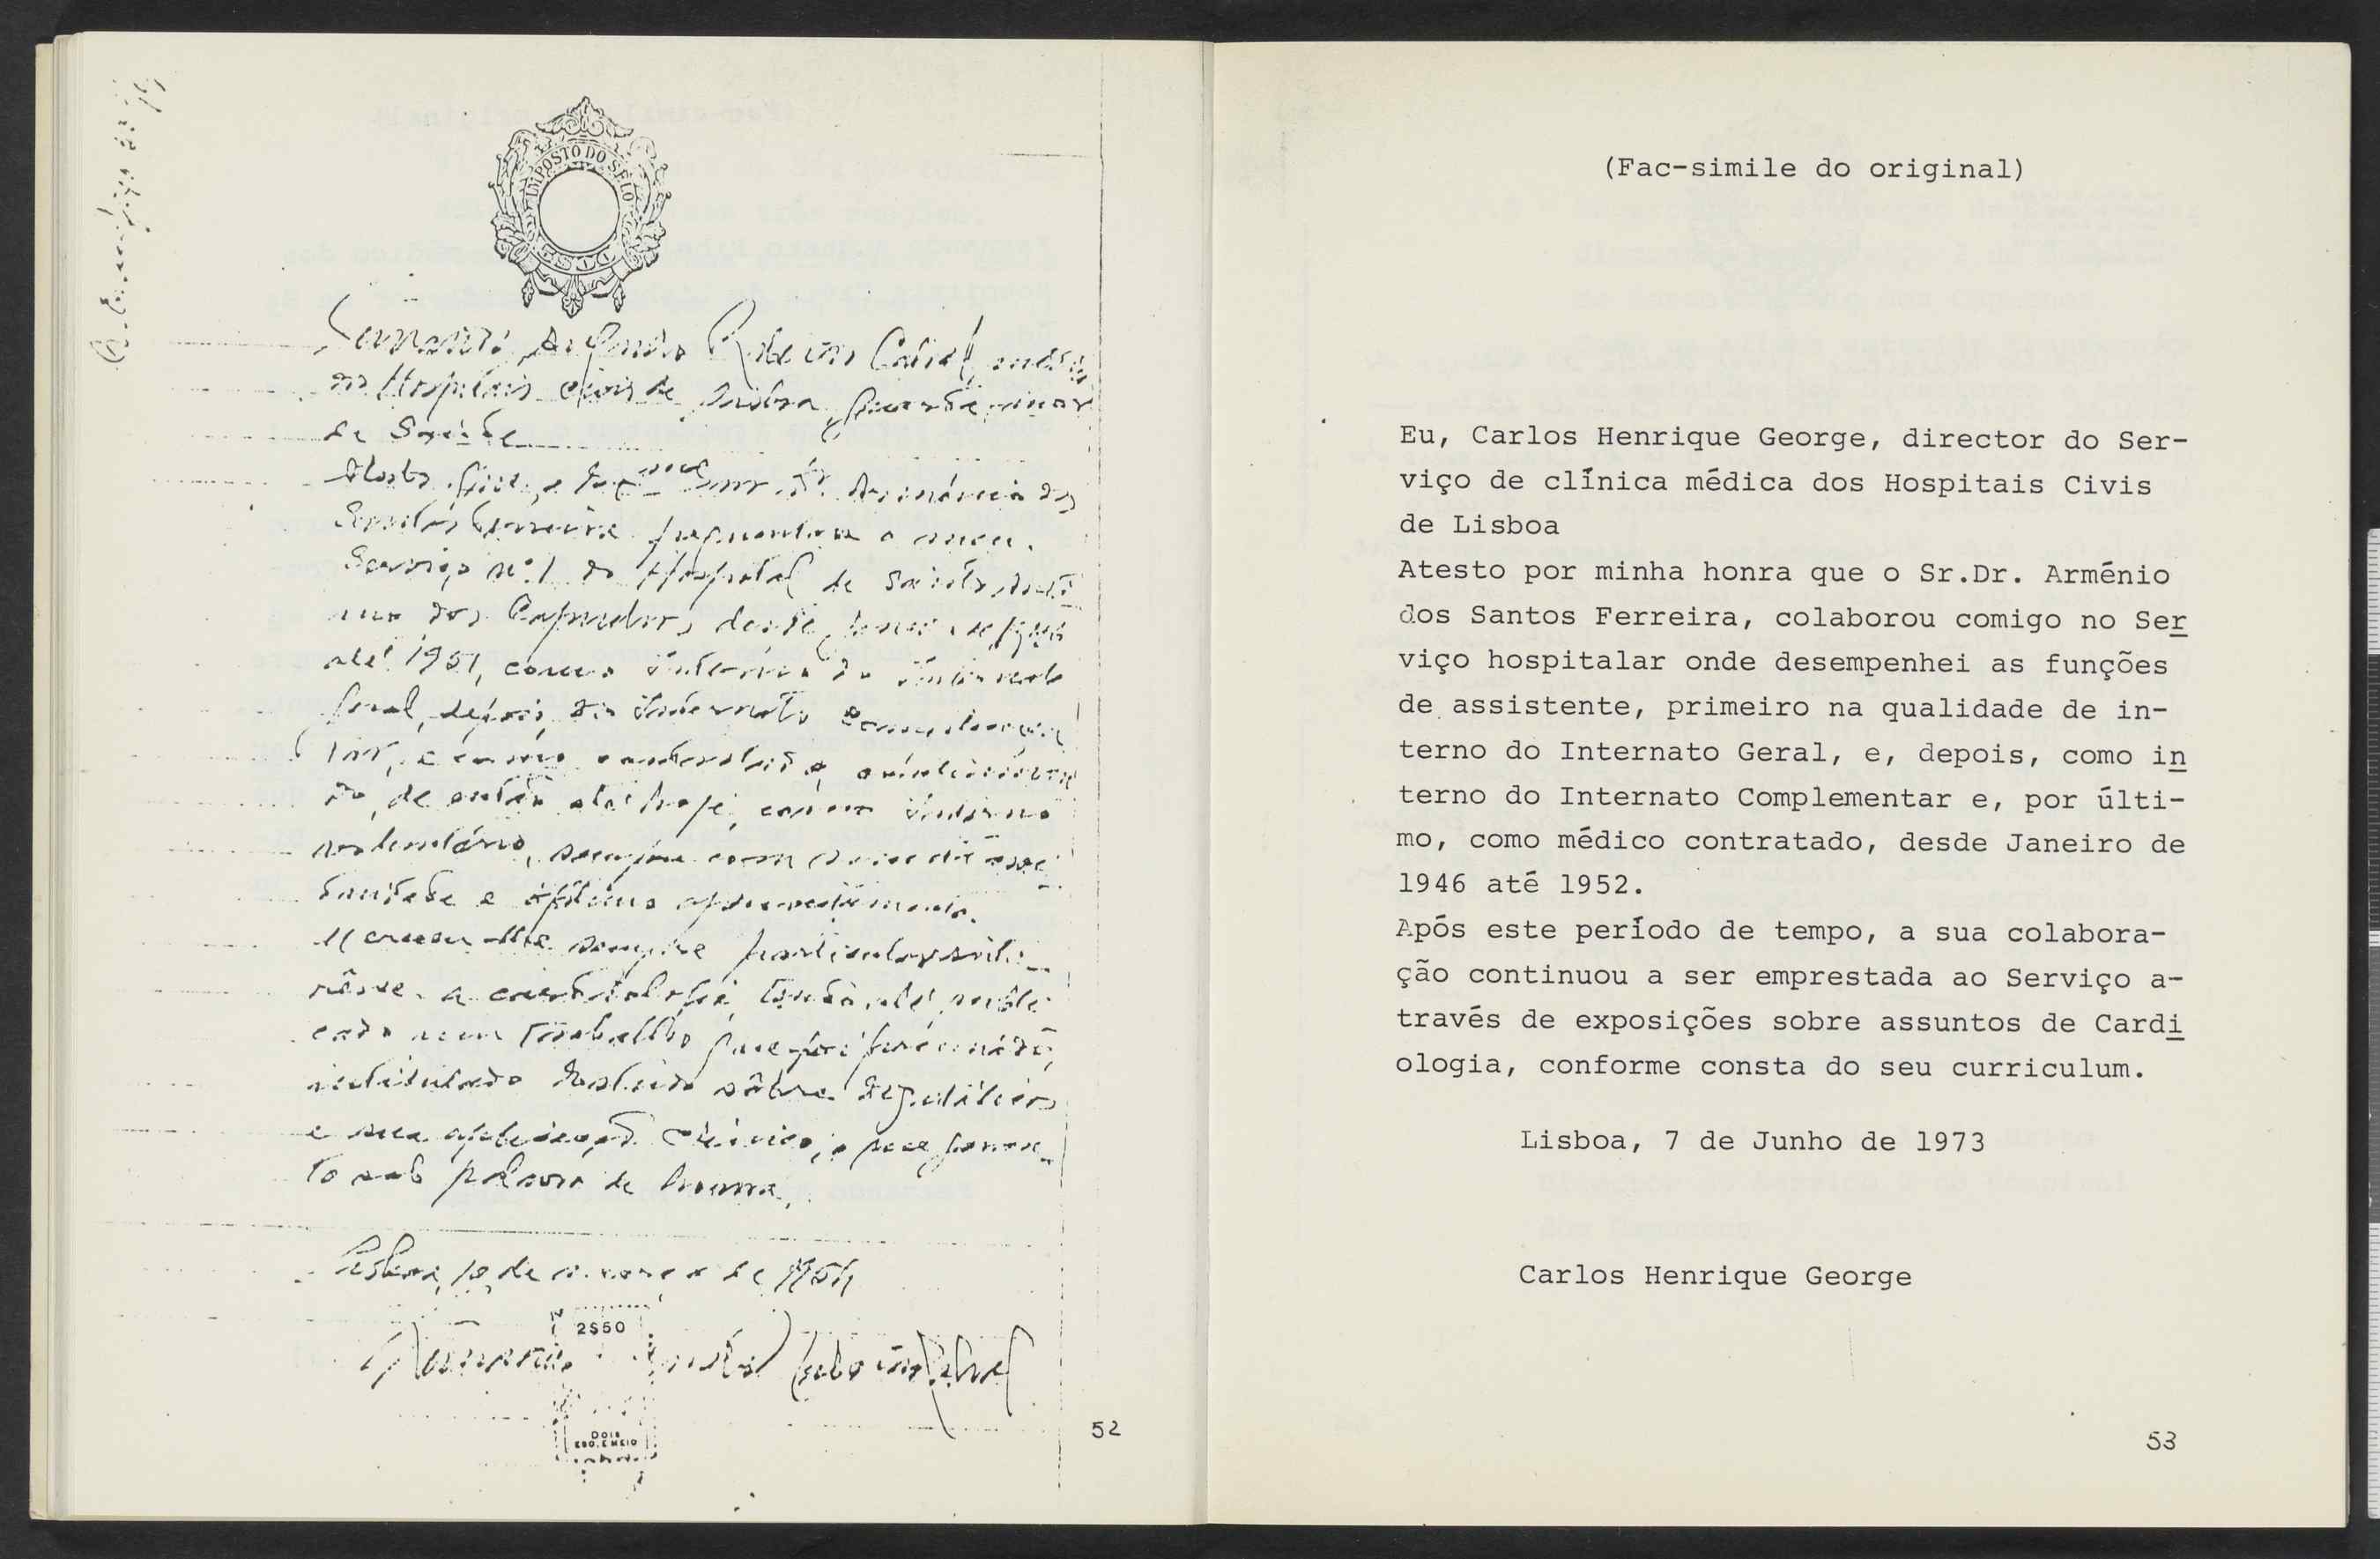 IMPOSTO DO SELO
ESC.
Fernando Augusto Ribeiro Cabral, médico
dos Hospitais civis de Lisboa,
de Saúde
Atesto que o Ex.mo Snr. Dr. Arménio dos
Santos Ferreira frequentou o meu
Serviço nº 1 do Hospital de Santo António
dos Capuchos desde
até 1951, como interno do internato
geral, depois do internato complemen
tar, e como
do, de então até hoje, como interno
voluntário, sempre com
e óptimo aproveitamento.
Mereceu-lhe sempre particular inte-
rêsse a cardiologia, tendo até publi
cado um trabalho que foi premiado,
intitulado Estudo sôbre Digitálicos
e sua aplicação clínica, o que
to sob palavra de honra.
Lisboa, 10 de março de 1954
2$50
Fernando Augusto Ribeiro Cabral
DOIS
ESC. E MEIO
52
(Fac-simile do original)
Eu, Carlos Henrique George, director do Ser-
viço de clínica médica dos Hospitais Civis
de Lisboa
Atesto por minha honra que o Sr.Dr. Arménio
dos Santos Ferreira, colaborou comigo no Ser
viço hospitalar onde desempenhei as funções
de assistente, primeiro na qualidade de in-
terno do Internato Geral, e, depois, como in
terno do Internato Complementar e, por últi-
mo, como médico contratado, desde Janeiro de
1946 até 1952.
Após este período de tempo, a sua colabora-
ção continuou a ser emprestada ao Serviço a-
través de exposições sobre assuntos de Cardi
ologia, conforme consta do seu curriculum.
Lisboa, 7 de Junho de 1973
Carlos Henrique George
53